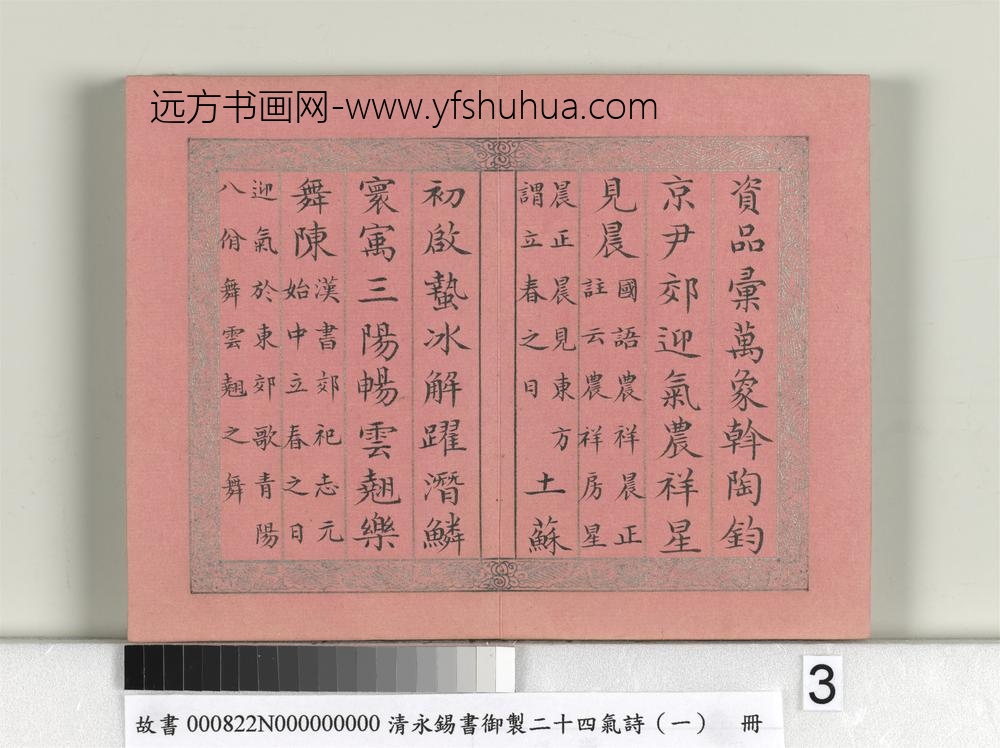 远方书画网-www.yfshuhua.com
資品彙萬象斡陶鈞
京尹郊迎氣農祥星
見晨國語農祥晨正
註云農祥房星
晨正晨見東方
謂立春之日
土蘇
初啟蟄冰解躍潛鱗
寰寓三陽暢雲翹樂
舞陳漢書郊祀志元
始中立春之日
迎氣於東郊歌青陽
八佾舞雲翹之舞
3
故書 000822N000000000 清永錫書御製二十四氣詩（一） 冊